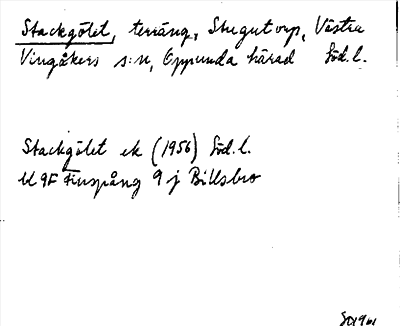 Stackgölet, terräng, Stugutorp, Västra
Vingåkers s:n, Oppunda härad Söd.l.
Stackgölet ek (1956) Söd.l.
9F Finspång 9 j Billsbro